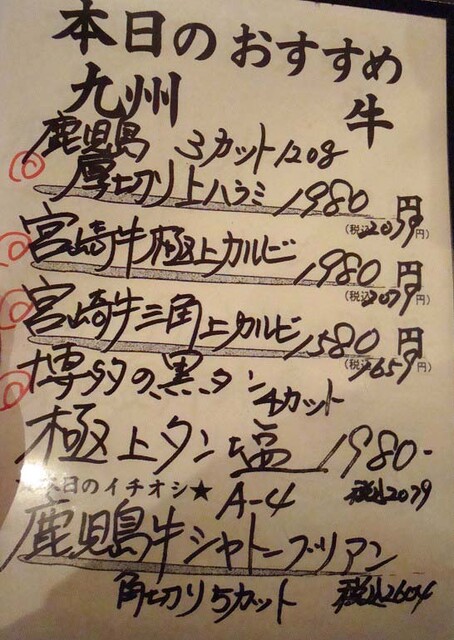 本日のおすすめ
九州 牛
鹿児島 3カット120g
厚切り上ハラミ 1980円
(税込2079円)
宮崎牛極上カルビ 1980円
(税込2079円)
宮崎牛三角上カルビ 1580円
(税込1659円)
博多の黒タン 4カット
極上タン塩 1980-
税込2079
本日のイチオシ★ A-4
鹿児島牛シャトーブリアン
角切り5カット 税込2604